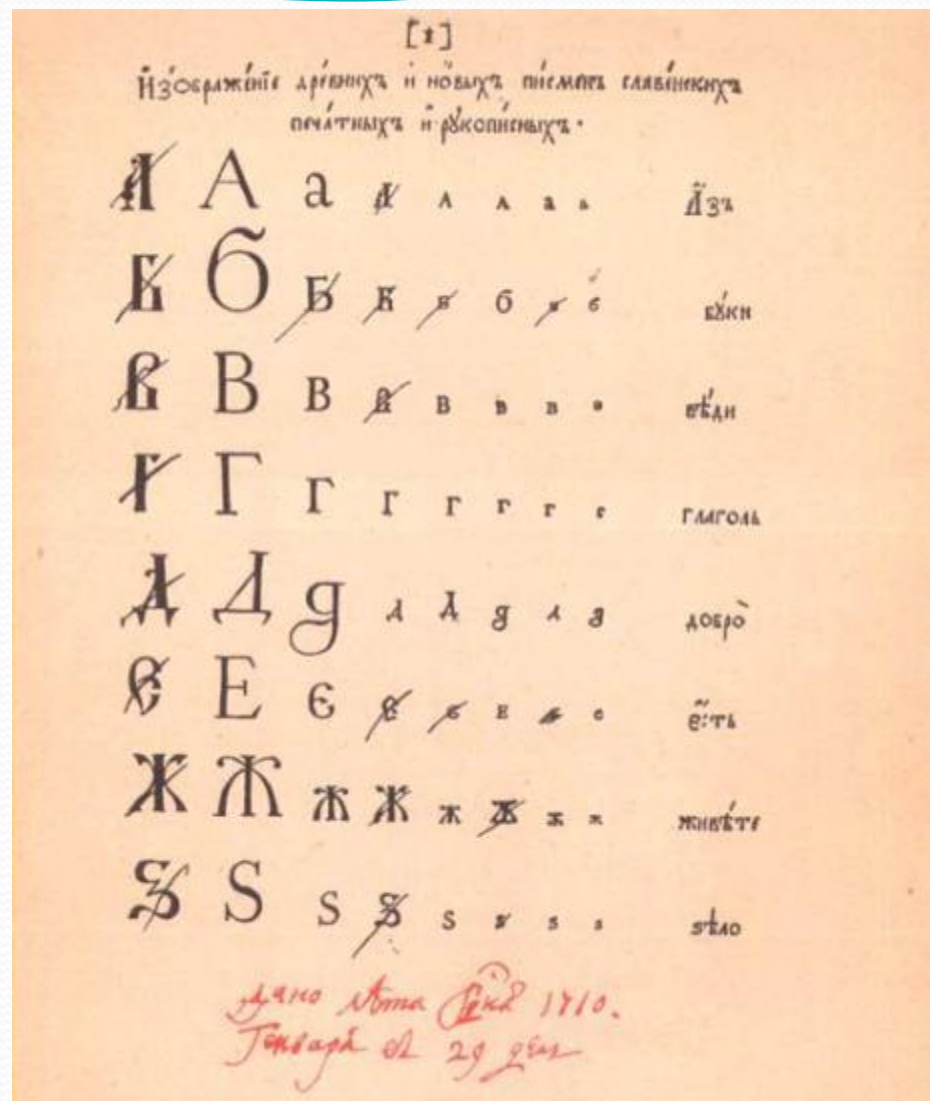 [1]
И҆зѡбраже́нїе дре́внихъ и҆ но́выхъ пи́сменъ славе́нскихъ
печа́тныхъ и҆ рꙋкопи́сныхъ.
А А а а а а а а А҆́зъ
Б б Б Б б б б б бꙋ́ки
В В в в в в в в вѣ́ди
Г Г г г г г г г глаголь
Д Д д д д д д д добро̀
Є Е є є є е е е є҆́сть
Ж Ж ж ж ж ж ж ж живѣ́те
Ѕ Ѕ ѕ ѕ ѕ ѕ ѕ ѕ ѕѣло
Дано лѣта 1710.
Генваря въ 29 день